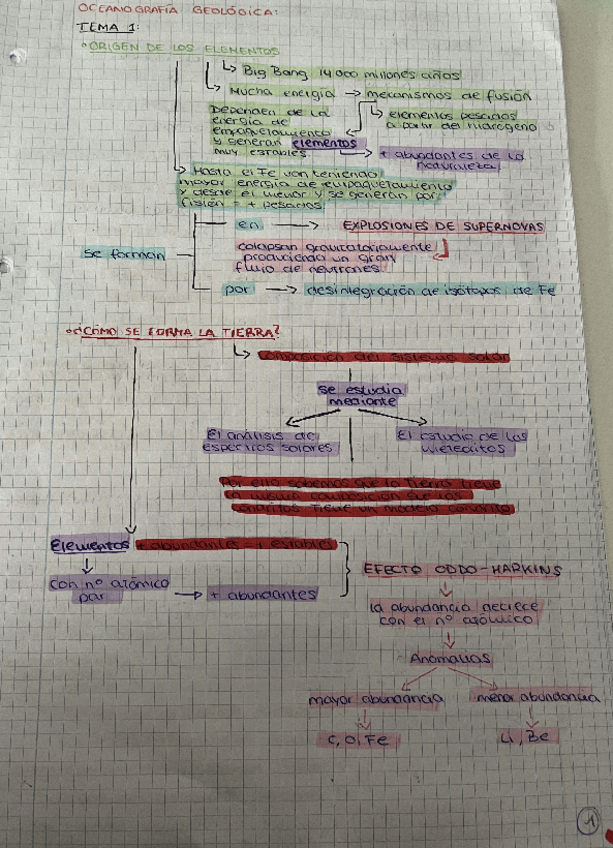 OCEANOGRAFÍA GEOLÓGICA:
TEMA 1:
• ORIGEN DE LOS ELEMENTOS
↳ Big Bang 14000 millones años
↳ Mucha energía → mecanismos de fusión
Dependen de la
energía de
empaquetamiento
y generan elementos
muy estables
↳ elementos pesados
a partir del hidrógeno
→ + abundantes de la
naturaleza
↳ Hasta el Fe van teniendo
mayor energía de empaquetamiento
y desde el menor y se generan por
fisión = + pesados
se forman
en → EXPLOSIONES DE SUPERNOVAS
colapsan gravitatoriamente
produciendo un gran
flujo de neutrones
por → desintegración de isótopos de Fe
• ¿CÓMO SE FORMA LA TIERRA?
↳ composición del sistema solar
se estudia
mediante
El análisis de
espectros solares
El estudio de los
meteoritos
Por ello sabemos que la Tierra tiene
la misma composición que las
condritas tiene un modelo condrito
Elementos + abundantes = + estables
↓
con nº atómico
par → + abundantes
EFECTO ODDO-HARKINS
↓
la abundancia decrece
con el nº atómico
↓
Anomalías
mayor abundancia
menor abundancia
C, O, Fe
Li, Be
1